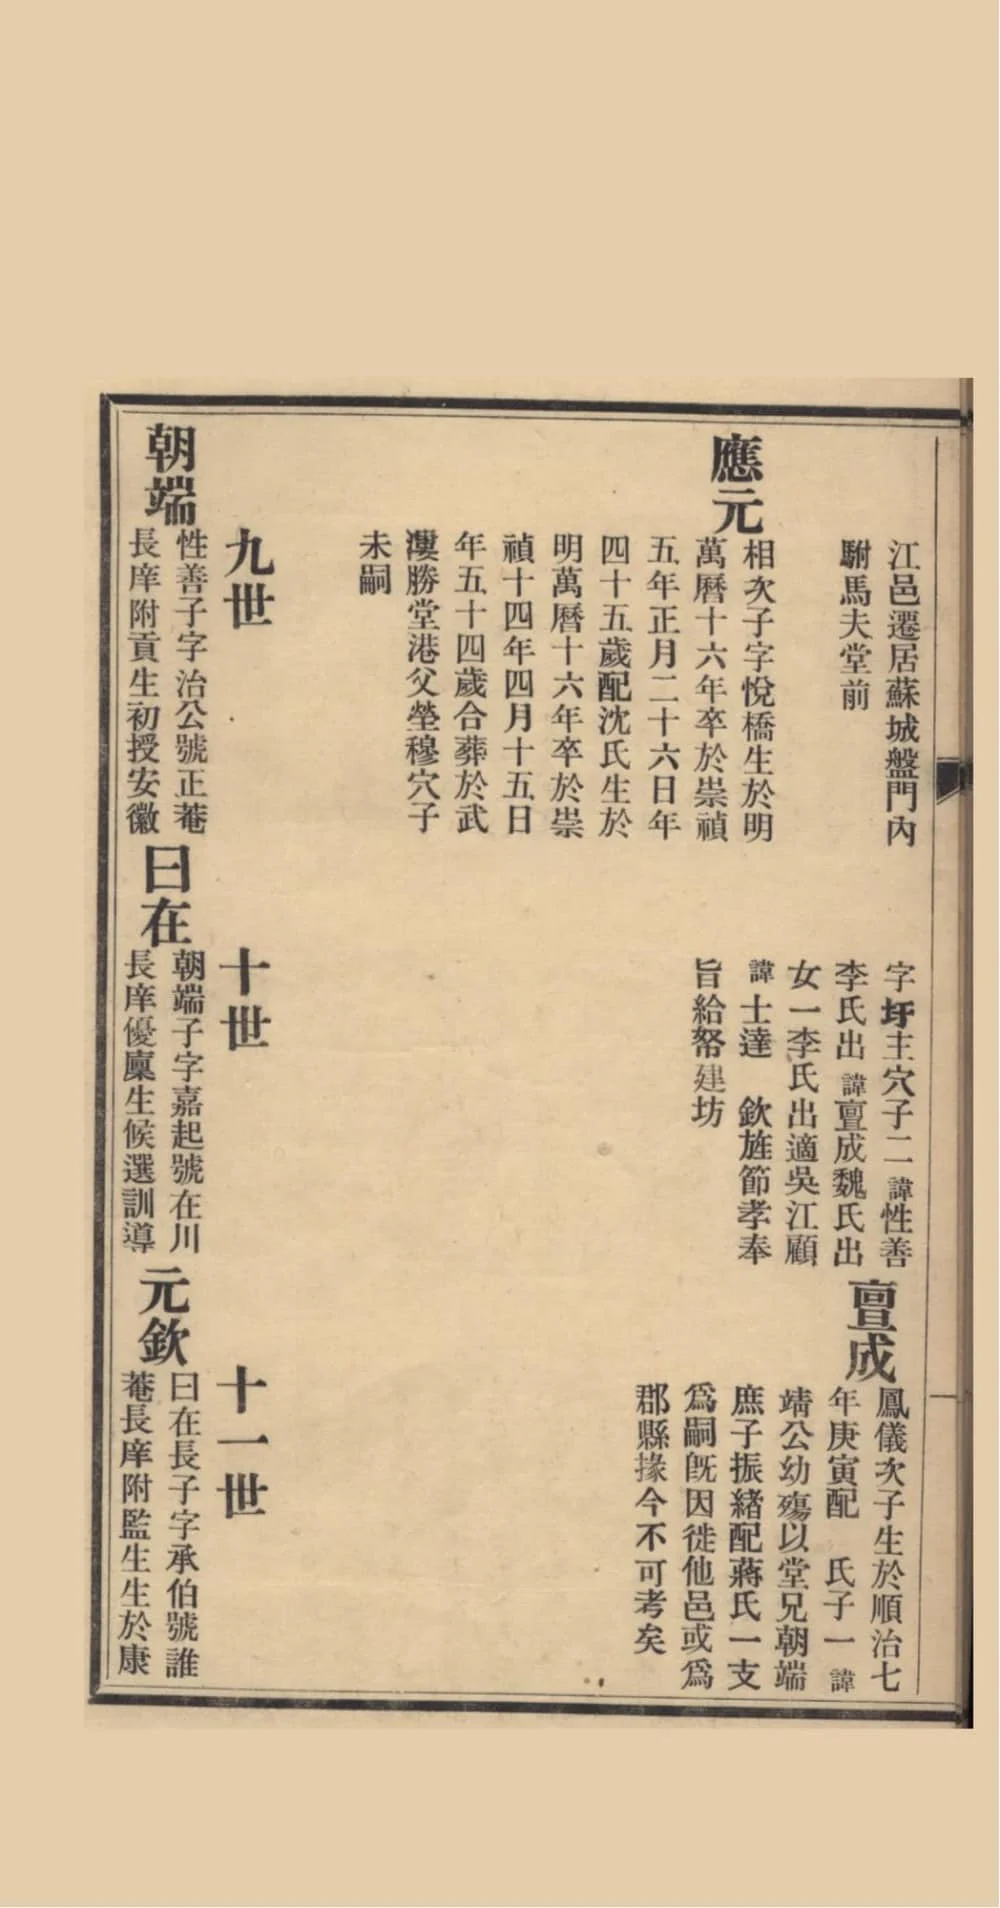 江邑遷居蘇城盤門內
駙馬夫堂前
應元
相次子字悅橋生於明
萬曆十六年卒於崇禎
五年正月二十六日年
四十五歲配沈氏生於
明萬曆十六年卒於崇
禎十四年四月十五日
年五十四歲合葬於武
漊勝堂港父塋穆穴子
未嗣
字圩主穴子二諱性善
李氏出諱亶成魏氏出
女一李氏出適吳江顧
諱士達 欽旌節孝奉
旨給帑建坊
亶成
鳳儀次子生於順治七
年庚寅配 氏子一諱
靖公幼殤以堂兄朝端
庶子振緒配蔣氏一支
爲嗣旣因徙他邑或爲
郡縣掾今不可考矣
九世
朝端
性善子字治公號正菴
長庠附貢生初授安徽
十世
曰在
朝端子字嘉起號在川
長庠優廩生候選訓導
十一世
元欽
曰在長子字承伯號誰
菴長庠附監生生於康